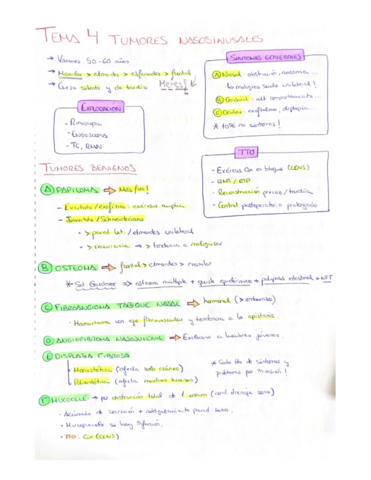 TEMA 4 TUMORES NASOSINUSALES
→ Varones 50-60 años
→ Maxilar > etmoides > esfenoides > frontal
→ Curso silente y dx tardío
SÍNTOMAS GENERALES
Ⓐ Nasal: obstrucción, anosmia...
unilateral!
Ⓒ Ocular: exoftalmos, diplopia...
síntomas!
EXPLORACIÓN
- Rinoscopia
- Endoscopia
- TC, RMN
TTO
- Exéresis en bloque (CENS)
- Reconstrucción precoz / tardía
- Control postoperatorio prolongado
TUMORES BENIGNOS
Ⓐ PAPILOMA ⇒
- Invertido / Schneideriano
→ > pared lat. / etmoides unilateral
→ > recurrencia → > tendencia a malignizar
Ⓑ OSTEOMA ⇒ frontal > etmoides > maxilar
* Sd Gardner ⇒ osteoma múltiple + quiste epidérmico + poliposis intestinal +
Ⓒ FIBROANGIOMA TABIQUE NASAL ⇒ hormonal (> embarazo)
- Hamartoma con eje fibrovascular y tendencia a la epistaxis.
Ⓓ ANGIOFIBROMA NASOJUVENIL ⇒ Exclusivo de hombres jóvenes.
Ⓔ DISPLASIA FIBROSA
- Monostótica (afecta solo cráneo)
- Poliostótica (afecta muchos huesos)
* Solo tto de síntomas y
problemas por presión!
Ⓕ MUCOCELE → por obstrucción total de 1 ostium (canal drenaje seno)
- Acúmulo de secreción + adelgazamiento pared seno.
- Mucopiocele si hay infección.
- TTO: Cx (CENS)